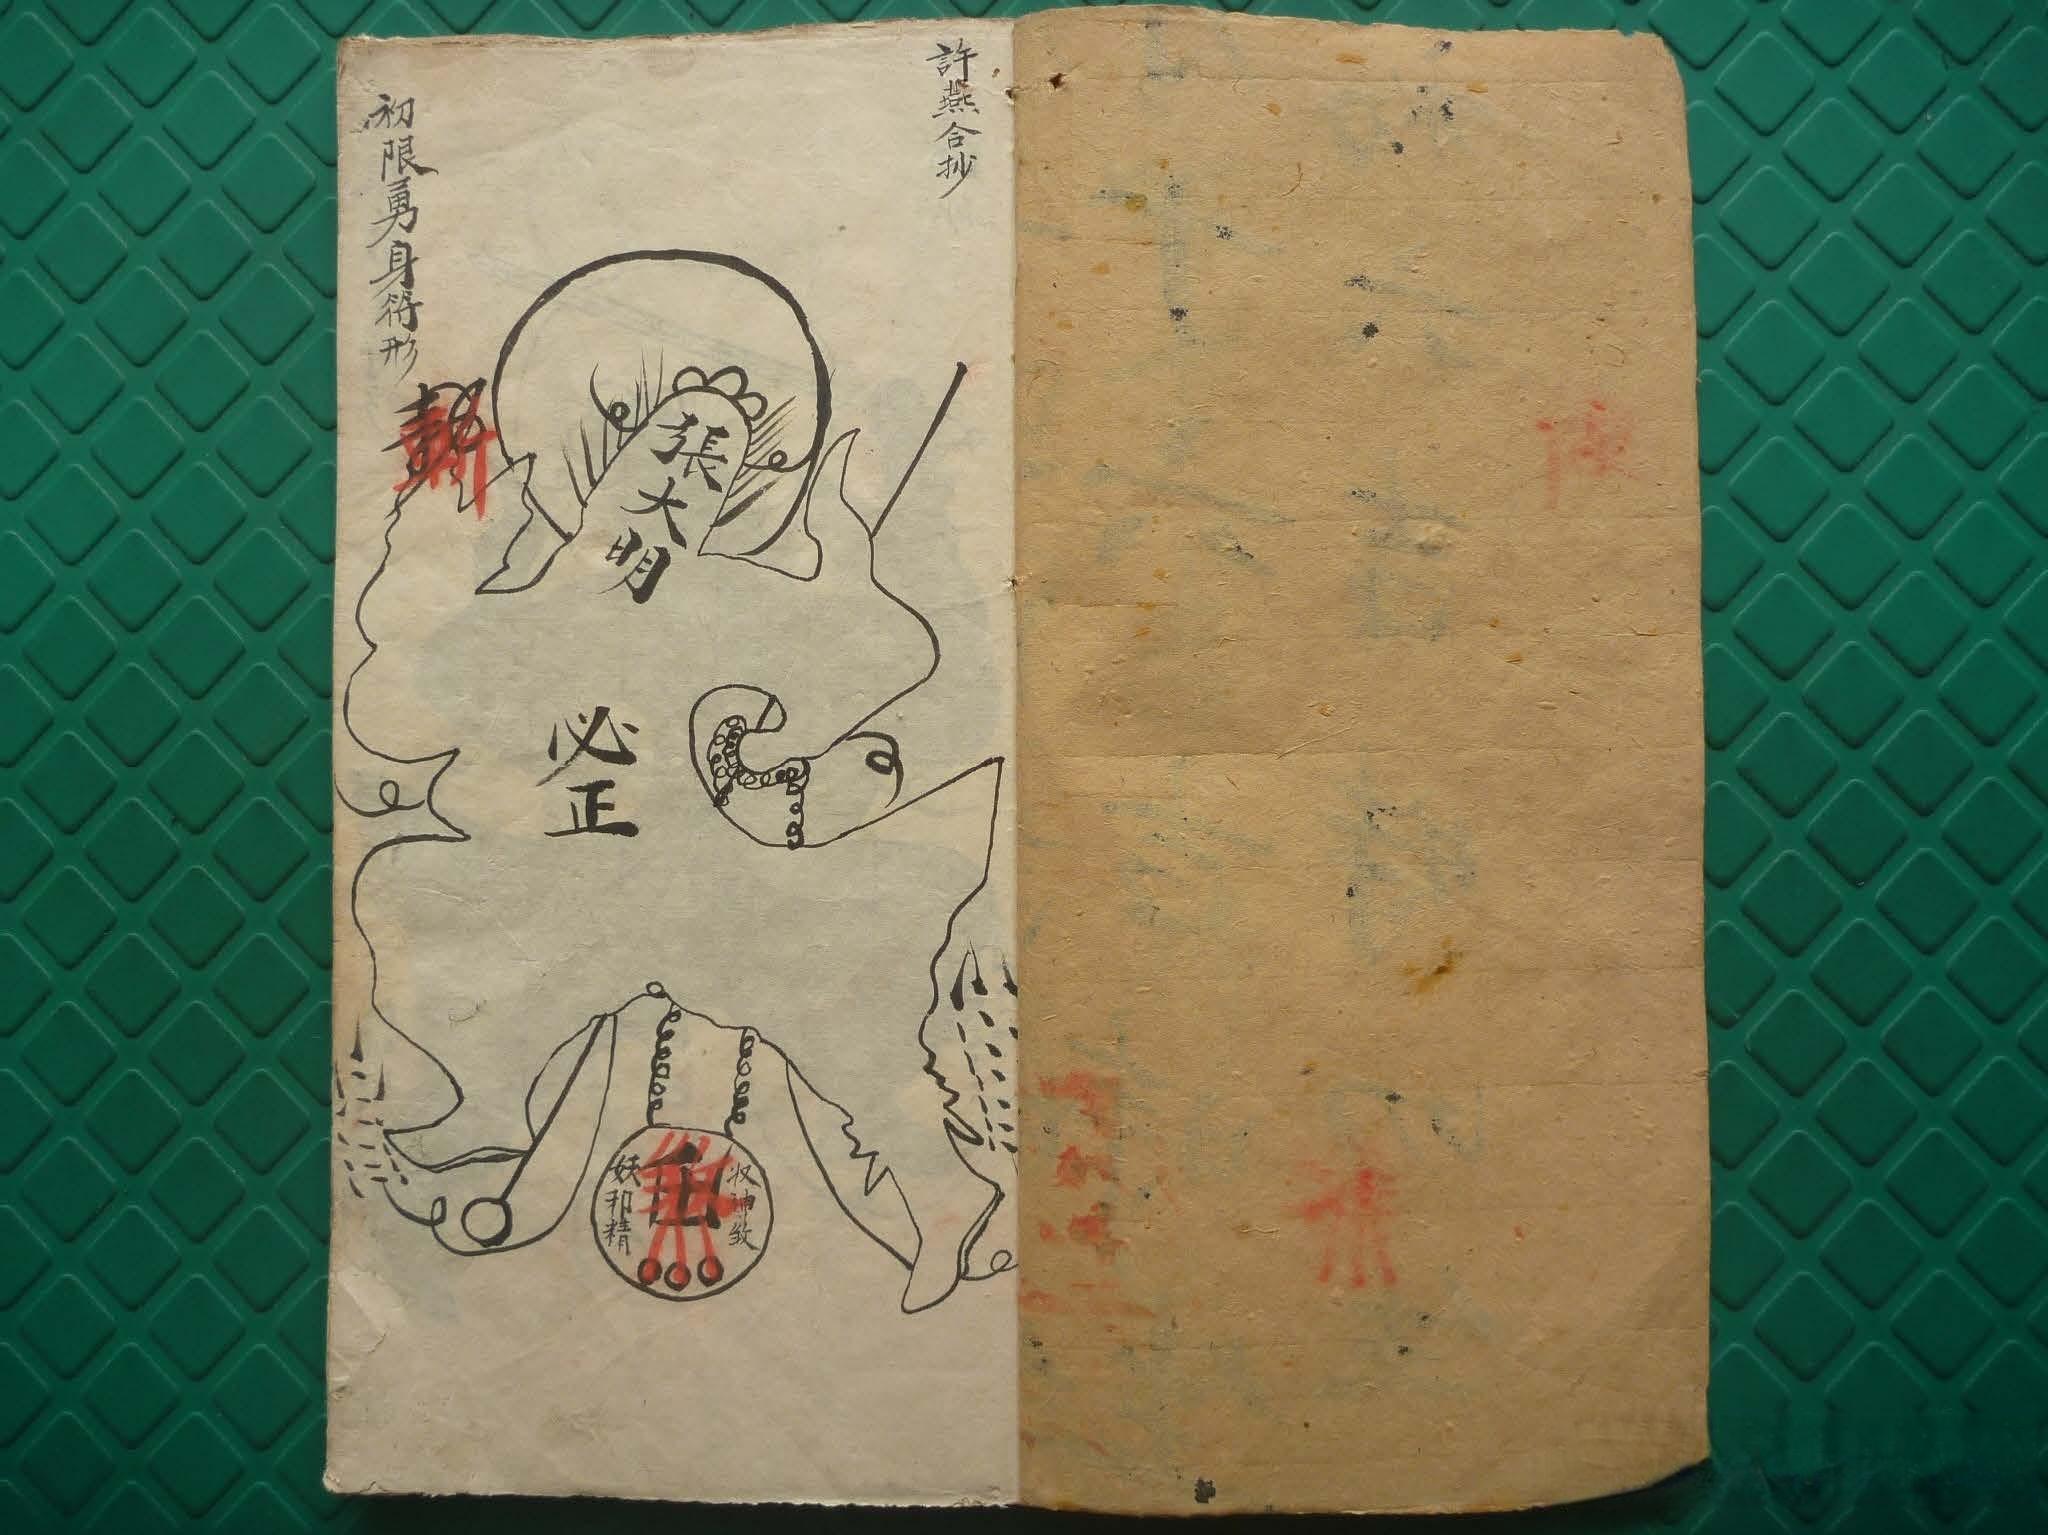 許燕合抄
初限勇身符形
張大明
必正
收神致
妖邪精